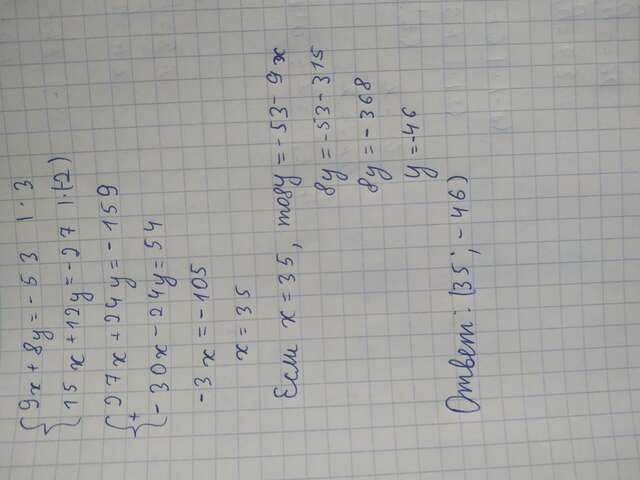 9x + 8y = - 53 | · 3
15x + 12y = -27 | · (-2)
27x + 24y = - 159
+
- 30x - 24y = 54
-3x = -105
x = 35
Если x = 35, то 8y = -53 - 9x
8y = -53 - 315
8y = - 368
y = -46
Ответ: (35; - 46)